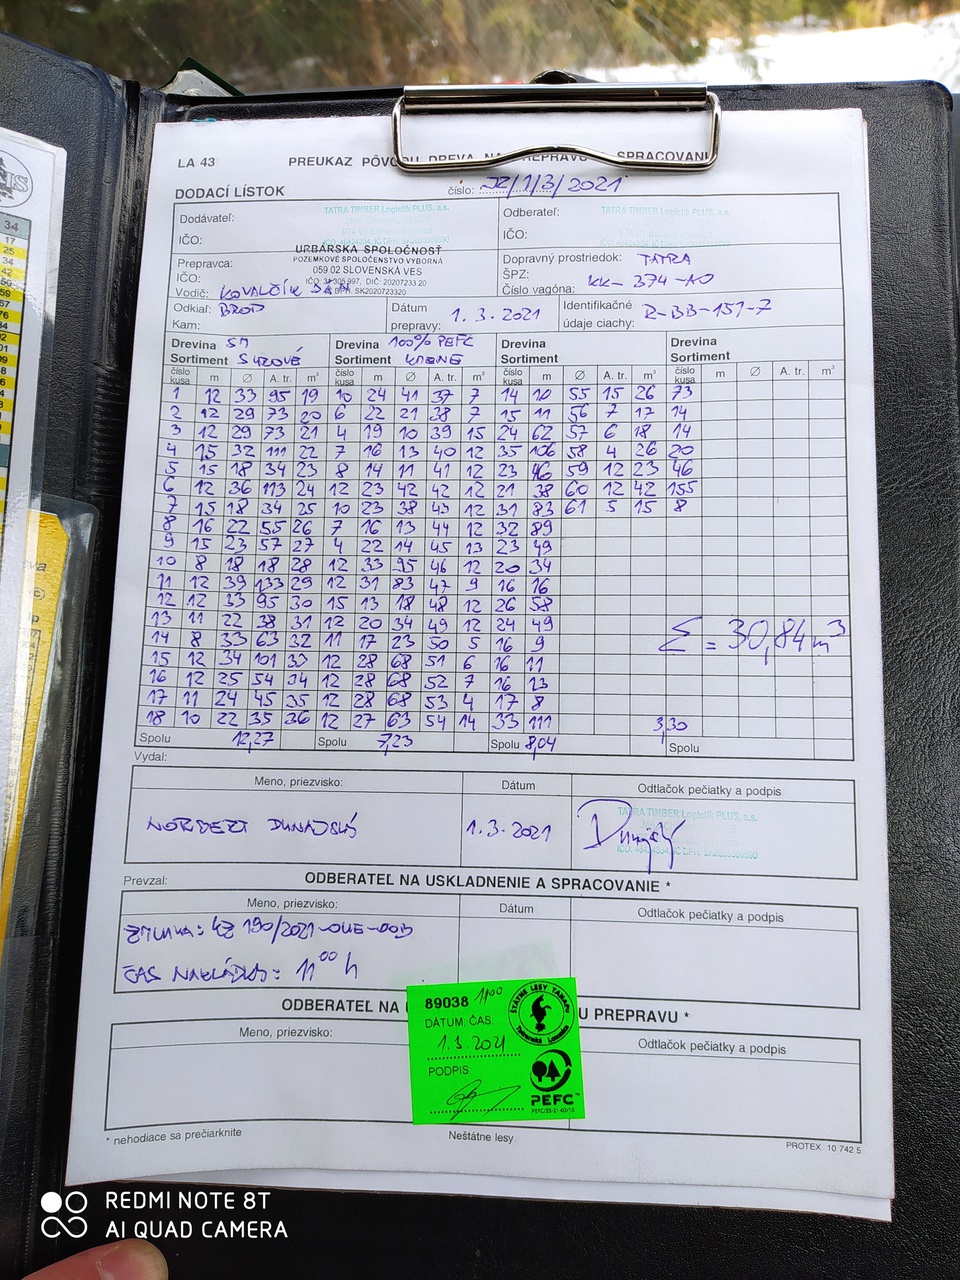 LA 43 PREUKAZ PÔVODU DREVA NA PREPRAVU SPRACOVANI
DODACÍ LÍSTOK číslo: JZ/1/3/2021
Dodávateľ: TATRA TIMBER Logistik PLUS, a.s. Odberateľ: TATRA TIMBER Logistik PLUS, a.s.
IČO: IČO:
URBÁRSKA SPOLOČNOSŤ
Prepravca: POZEMKOVÉ SPOLOČENSTVO VÝBORNÁ Dopravný prostriedok: TATRA
059 02 SLOVENSKÁ VES ŠPZ:
IČO: Číslo vagóna: KK-374-AO
Vodič: KOVALČÍK JÁN
Odkiaľ: BROD Dátum Identifikačné
Kam: prepravy: 1. 3. 2021 údaje ciachy: R-BB-151-7
Drevina SM Drevina 100% PEFC Drevina Drevina
Sortiment SUROVÉ Sortiment KMENE Sortiment Sortiment
číslo kusa m Ø A. tr. m³ číslo kusa m Ø A. tr. m³ číslo kusa m Ø A. tr. m³ číslo kusa m Ø A. tr. m³
1 12 33 95 19 10 24 41 37 7 14 10 55 15 26 73
2 12 29 73 20 6 22 21 38 7 15 11 56 7 17 14
3 12 29 73 21 4 19 10 39 15 24 62 57 6 18 14
4 15 32 111 22 7 16 13 40 12 35 106 58 4 26 20
5 15 18 34 23 8 14 11 41 12 23 46 59 12 23 46
6 12 36 113 24 12 23 42 42 12 21 38 60 12 42 155
7 15 18 34 25 10 23 38 43 12 31 83 61 5 15 8
8 16 22 55 26 7 16 13 44 12 32 89
9 15 23 57 27 4 22 14 45 13 23 49
10 8 18 18 28 12 33 95 46 12 20 34
11 12 39 133 29 12 31 83 47 9 16 16
12 12 33 95 30 15 13 18 48 12 26 58
13 11 22 38 31 12 20 34 49 12 24 49
14 8 33 63 32 11 17 23 50 5 16 9
15 12 34 101 33 12 28 68 51 6 16 11
16 12 25 54 34 12 28 68 52 7 16 13
17 11 24 45 35 12 28 68 53 4 17 8
18 10 22 35 36 12 27 63 54 14 33 111
Σ = 30,84 m³
3,30
Spolu 12,27 Spolu 7,23 Spolu 8,04 Spolu
Vydal:
Meno, priezvisko: Dátum Odtlačok pečiatky a podpis
NORBERT DUNAJSKÝ 1.3.2021 TATRA TIMBER Logistik PLUS, a.s.
ODBERATEĽ NA USKLADNENIE A SPRACOVANIE *
Prevzal:
Meno, priezvisko: Dátum Odtlačok pečiatky a podpis
ZMLUVA: KZ 190/2021
ČAS NAKLÁDKY: 11⁰⁰ h
ODBERATEĽ NA U PREPRAVU *
Meno, priezvisko: Odtlačok pečiatky a podpis
89038 11⁰⁰
DÁTUM, ČAS.
1.3.2021
PODPIS
ŠTÁTNE LESY TANAPU
Tatranská Lomnica
PEFC
* nehodiace sa prečiarknite Neštátne lesy PROTEX 10 742 5
REDMI NOTE 8T
AI QUAD CAMERA